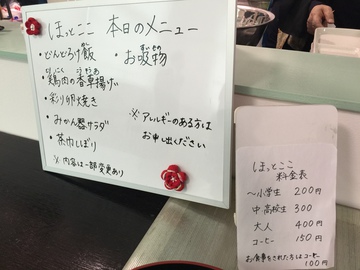 ほっとここ 本日のメニュー
・どんどろけ飯 ・お吸物
・鶏肉の香草揚げ
・彩り卵焼き
・みかん寒サラダ
・茶巾しぼり
※アレルギーのある方は
お申し出ください
※内容は一部変更あり
ほっとここ
料金表
～小学生 200円
中・高校生 300
大人 400円
コーヒー 150円
お食事をされた方はコーヒー
100円